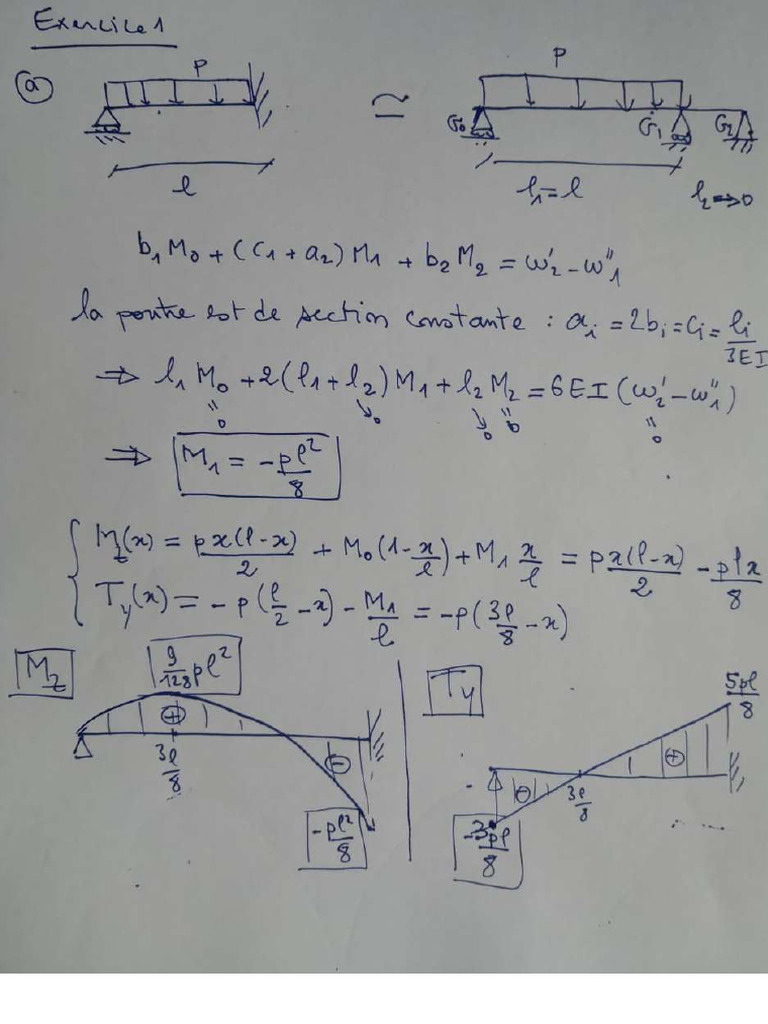 Exercice 1
a
P
l
≃
P
G₀ G₁ G₂
l₁=l
l₂→0
b₁M₀ + (c₁+a₂)M₁ + b₂M₂ = ω'₂ - ω''₁
la poutre est de section constante : aᵢ = 2bᵢ = cᵢ = lᵢ/3EI
⇒ l₁M₀ + 2(l₁+l₂)M₁ + l₂M₂ = 6EI(ω'₂ - ω''₁)
" 0 ↘ 0 ↘ 0 " 0 " 0
⇒ M₁ = -pl²/8
{ M_z(x) = px(l-x)/2 + M₀(1-x/l) + M₁ x/l = px(l-x)/2 - plx/8
T_y(x) = -p(l/2 - x) - M₁/l = -p(3l/8 - x)
M_z
9/128 pl²
+
3l/8
-
-pl²/8
T_y
5pl/8
+
-
3l/8
-3pl/8